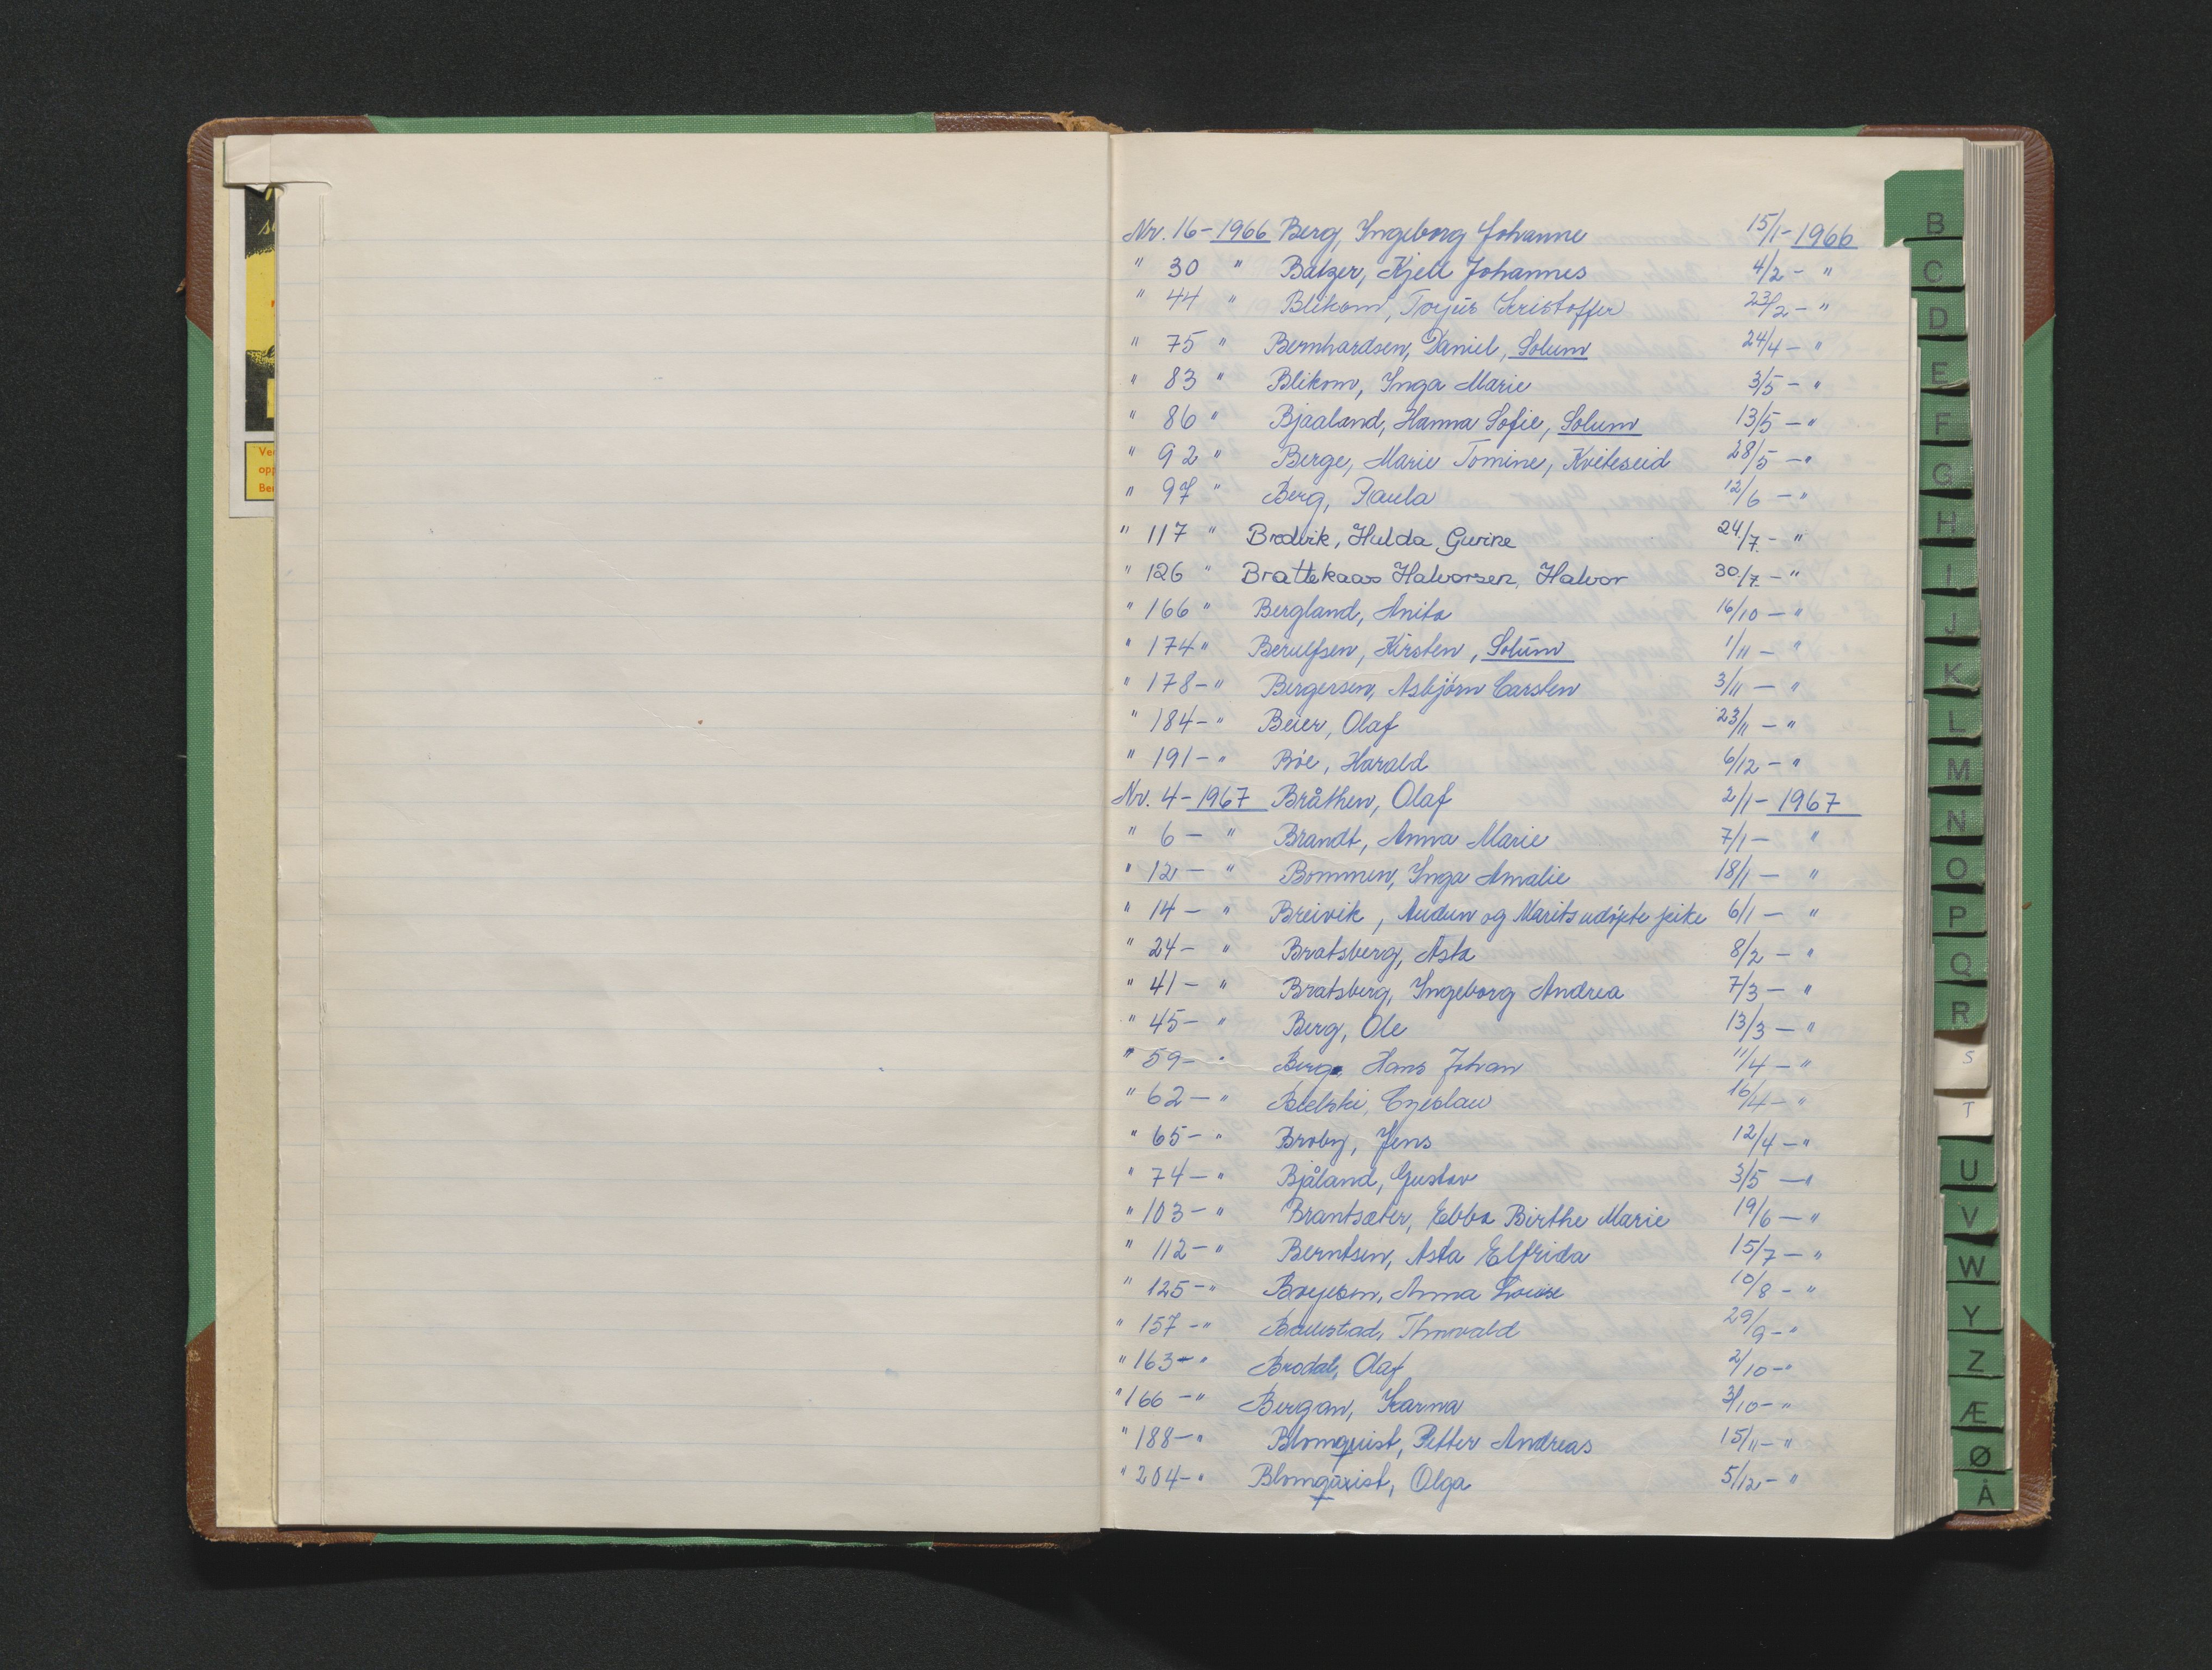 Nr. 16 - 1966 Berg, Ingeborg Johanne 15/1 - 1966
" 30 " Batzer, Kjell Johannes 4/2 - "
" 44 " Blikom, Torjus Kristoffer 23/2 - "
" 75 " Bernhardsen, Daniel, Solum 24/4 - "
" 83 " Blikom, Inga Marie 3/5 - "
" 86 " Bjaaland, Hanna Sofie, Solum 13/5 - "
" 92 " Berge, Marie Tomine, Kviteseid 28/5 - "
" 97 " Berg, Paula 12/6 - "
" 117 " Bredvik, Hulda Gurine 24./7. - "
" 126 " Brattekaas Halvorsen, Halvor 30./7. - "
" 166 " Bergland, Anita 16/10 - "
" 174 " Berulfsen, Kirsten, Solum 1/11 - "
" 178 - " Bergersen, Asbjørn Carsten 3/11 - "
" 184 - " Beier, Olaf 23/11 - "
" 191 - " Bøe, Harald 6/12 - "
Nr. 4 - 1967 Bråthen, Olaf 2/1 - 1967
" 6 - " Brandt, Anna Marie 7/1 - "
" 12 - " Bommen, Inga Amalie 18/1 - "
" 14 - " Breivik, Audun og Marits udøpte pike 6/1 - "
" 24 - " Bratsberg, Asta 8/2 - "
" 41 - " Bratsberg, Ingeborg Andrea 7/3 - "
" 45 - " Berg, Ole 13/3 - "
" 59 - " Berg, Hans Johan 11/4 - "
" 62 - " Bielski, Czeslaw 16/4 - "
" 65 - " Broby, Jens 12/4 - "
" 74 - " Bjåland, Gustav 3/5 - "
" 103 - " Brantsæter, Ebba Birthe Marie 19/6 - "
" 112 - " Berntsen, Asta Elfrida 15/7 - "
" 125 - " Boyesen, Anna Louise 10/8 - "
" 157 - " Thorvald 29/9 - "
" 163 - " Brodal, Olaf 2/10 - "
" 166 - " Bergan, Karna 3/10 - "
" 188 - " Blomquist, Petter Andreas 15/11 - "
" 204 - " Blomquist, Olga 5/12 - "
B
C
D
E
F
G
H
I
J
K
L
M
N
O
P
Q
R
S
T
U
V
W
Y
Z
Æ
Ø
Å